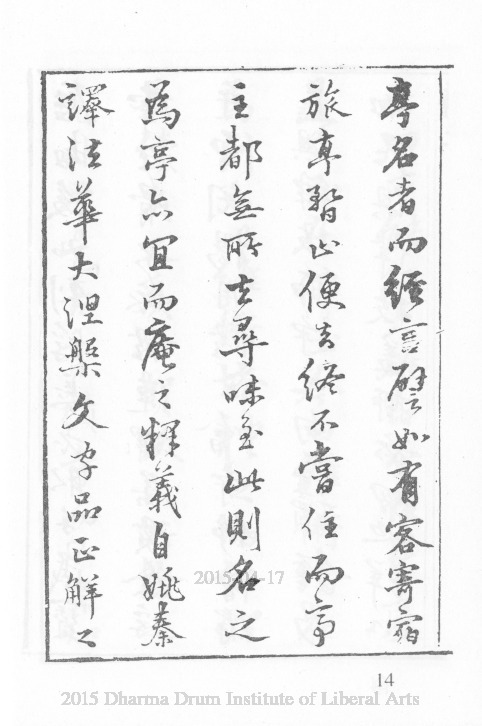 亭名者而經言譬如有客寄宿
旅亭暫止便去終不當住而亭
主都無所去尋味至此則名之
為亭亦宜而庵之釋義自姚秦
譯法華大涅槃文字品正解之
2015-04-17
14
2015 Dharma Drum Institute of Liberal Arts